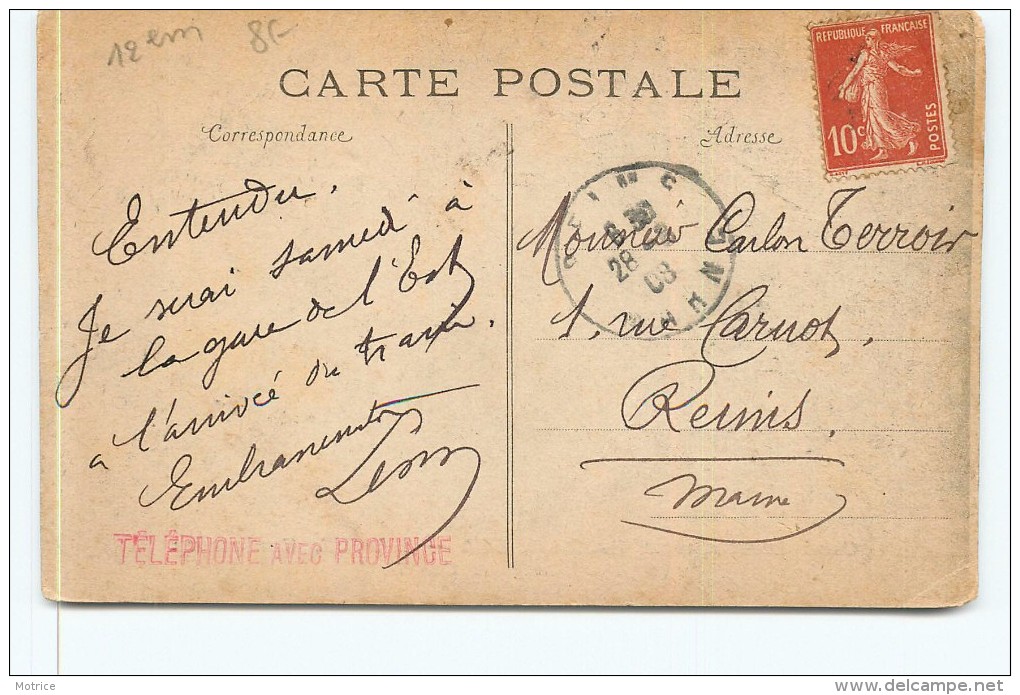 12em 8f-
CARTE POSTALE
Correspondance
Adresse
RÉPUBLIQUE FRANÇAISE
10c
POSTES
Entendu.
Je serai samedi à
la gare de l'Est
a l'arrivée du train.
Embrassements
TÉLÉPHONE AVEC PROVINCE
REIMS
28
08
MARNE
Monsieur Carlon Terroir
1, rue Carnot,
Reims.
Marne
Motrice
www.delcampe.net